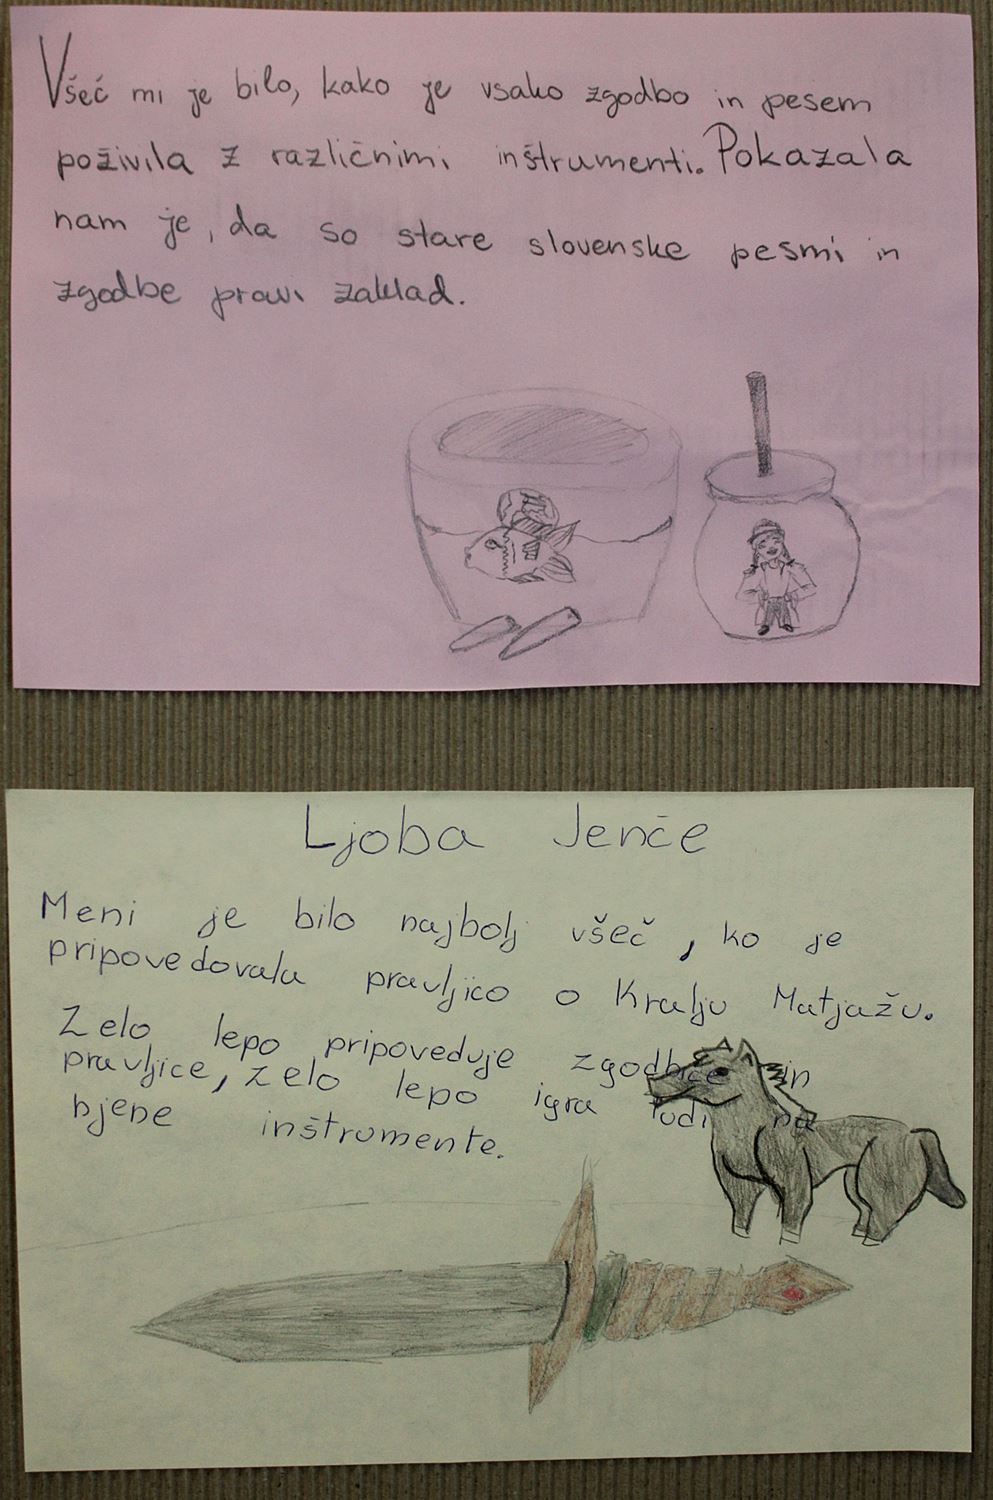 Všeč mi je bilo, kako je vsako zgodbo in pesem
poživila z različnimi inštrumenti. Pokazala
nam je, da so stare slovenske pesmi in
zgodbe pravi zaklad.
Ljoba Jenče
Meni je bilo najbolj všeč, ko je
pripovedovala pravljico o Kralju Matjažu.
Zelo lepo pripoveduje zgodbice in
pravljice, zelo lepo igra tudi na
njene inštrumente.